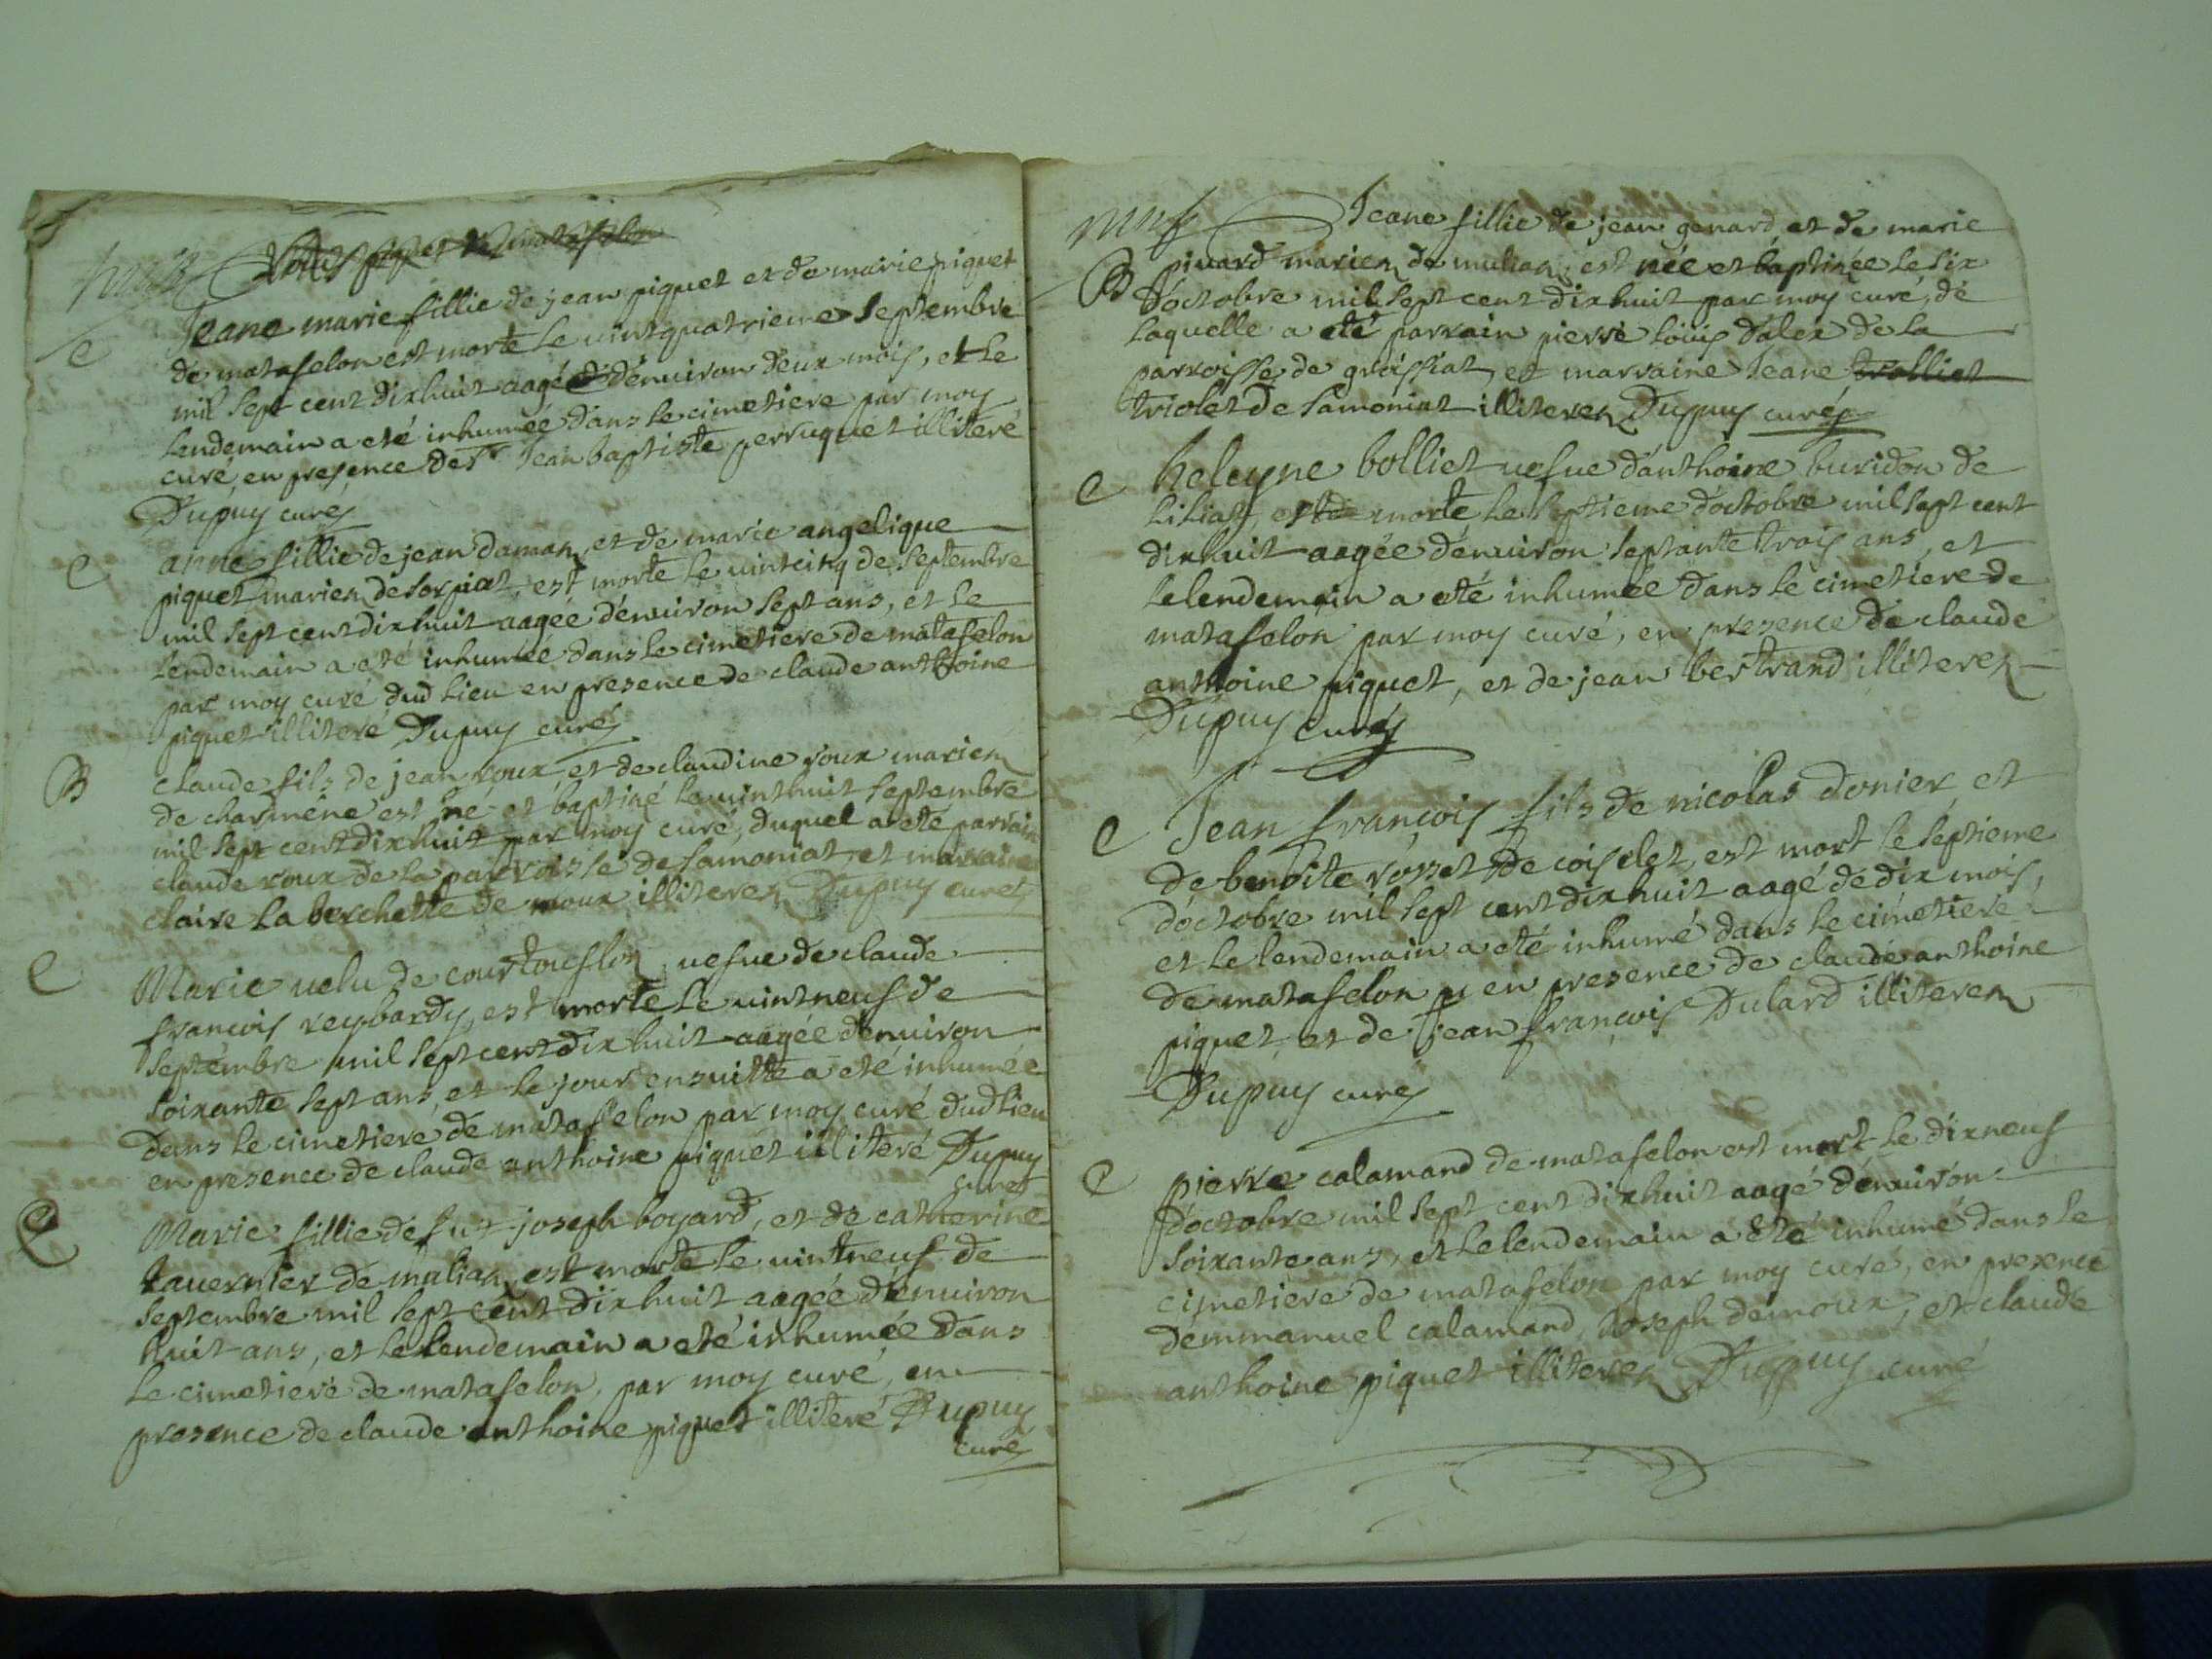 huit
Jeane marie fillie de jean piquet et de marie piquet
e
de matafelon est morte le vintquatrieme septembre
mil sept cent dixhuit aagé d'enuiron deux mois, et le
lendemain a eté inhumée dans le cimetiere par moy
curé, en presence de Sr Jean baptiste perruquet illiteré
Dupuy curé
e
anne fillie de jean daman et de marie angelique
piquet mariez de sorpiat, est morte le vintcinq de septembre
mil sept cent dixhuit aagée d'enuiron sept ans, et le
lendemain a eté inhumée dans le cimetiere de matafelon
par moy curé dud lieu en presence de claude anthoine
piquet illiteré Dupuy curé
B
claude fils de jean roux et de claudine roux mariez
de charmêne est né et baptizé le vinthuit septembre
mil sept cent dixhuit par moy curé, duquel a eté parrain
claude roux de la parroisse de samoniat, et marraine
claire la berchette de moux illiterez Dupuy curé
e
Marie uelu de courtouflon, uefue de claude
francois reybardy, est morte le vintneuf de
septembre mil sept cent dix huit aagée d'enuiron
soixante sept ans, et le jour ensuitte a eté inhumée
dans le cimetiere de matafelon par moy curé dud lieu
en presence de claude anthoine piquet illiteré Dupuy
curé
e
Marie fillie de fut joseph boyard, et de catherine
tauernier de mulian est morte le vintneuf de
septembre mil sept cent dix huit aagée d'enuiron
huit ans, et le lendemain a eté inhumée dans
le cimetiere de matafelon, par moy curé, en
presence de claude anthoine piquet illiteré Dupuy
curé
Jeane fillie de jean genard et de marie
B
piuard mariez de mulian, est née et baptizée le six
d'octobre mil sept cent dixhuit par moy curé, de
laquelle a eté parrain pierre louis dalex de la
parroisse de graissiat, et marraine Jeane trolliet
triolet de samoniat illiterez Dupuy curé
e
heleyne bolliet uefue d'anthoine buridon de
liliat, est morte le septieme d'octobre mil sept cent
dixhuit aagée d'enuiron septante trois ans, et
le lendemain a eté inhumée dans le cimetiere de
matafelon par moy curé, en presence de claude
anthoine piquet, et de jean bertrand illiterez
Dupuy curé
e
Jean françois fils de nicolas donier, et
de benoite rosset de coiselet, est mort le septieme
d'octobre mil sept cent dixhuit aagé de dix mois,
et le lendemain a eté inhumé dans le cimetiere
de matafelon en presence de claude anthoine
piquet, et de jean françois Dulard illiterez
Dupuy curé
e
pierre calamand de matafelon est mort le dixneuf
d'octobre mil sept cent dixhuit aagé d'enuiron
soixante ans, et le lendemain a eté inhumé dans le
cimetiere de matafelon par moy curé, en presence
d'emmanuel calamand, Joseph demoux, et claude
anthoine piquet illiterez Dupuy curé